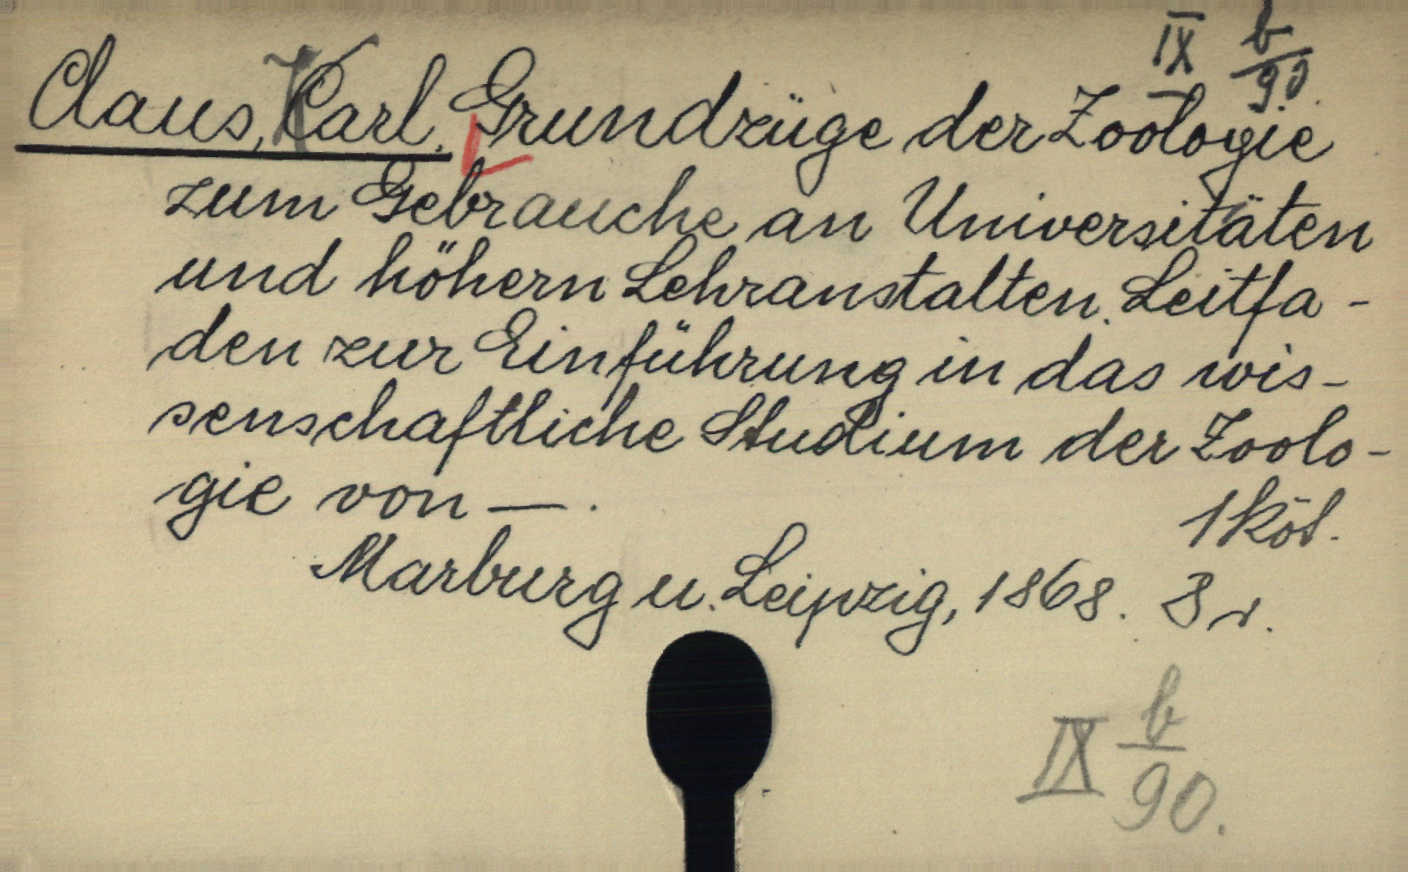 IX b/90.
Claus, Karl. Grundzüge der Zoologie
zum Gebrauche an Universitäten
und höhern Lehranstalten. Leitfa-
den zur Einführung in das wis-
senschaftliche Studium der Zoolo-
gie von —.
1 köt.
Marburg u. Leipzig, 1868. 8 r.
IX b/90.